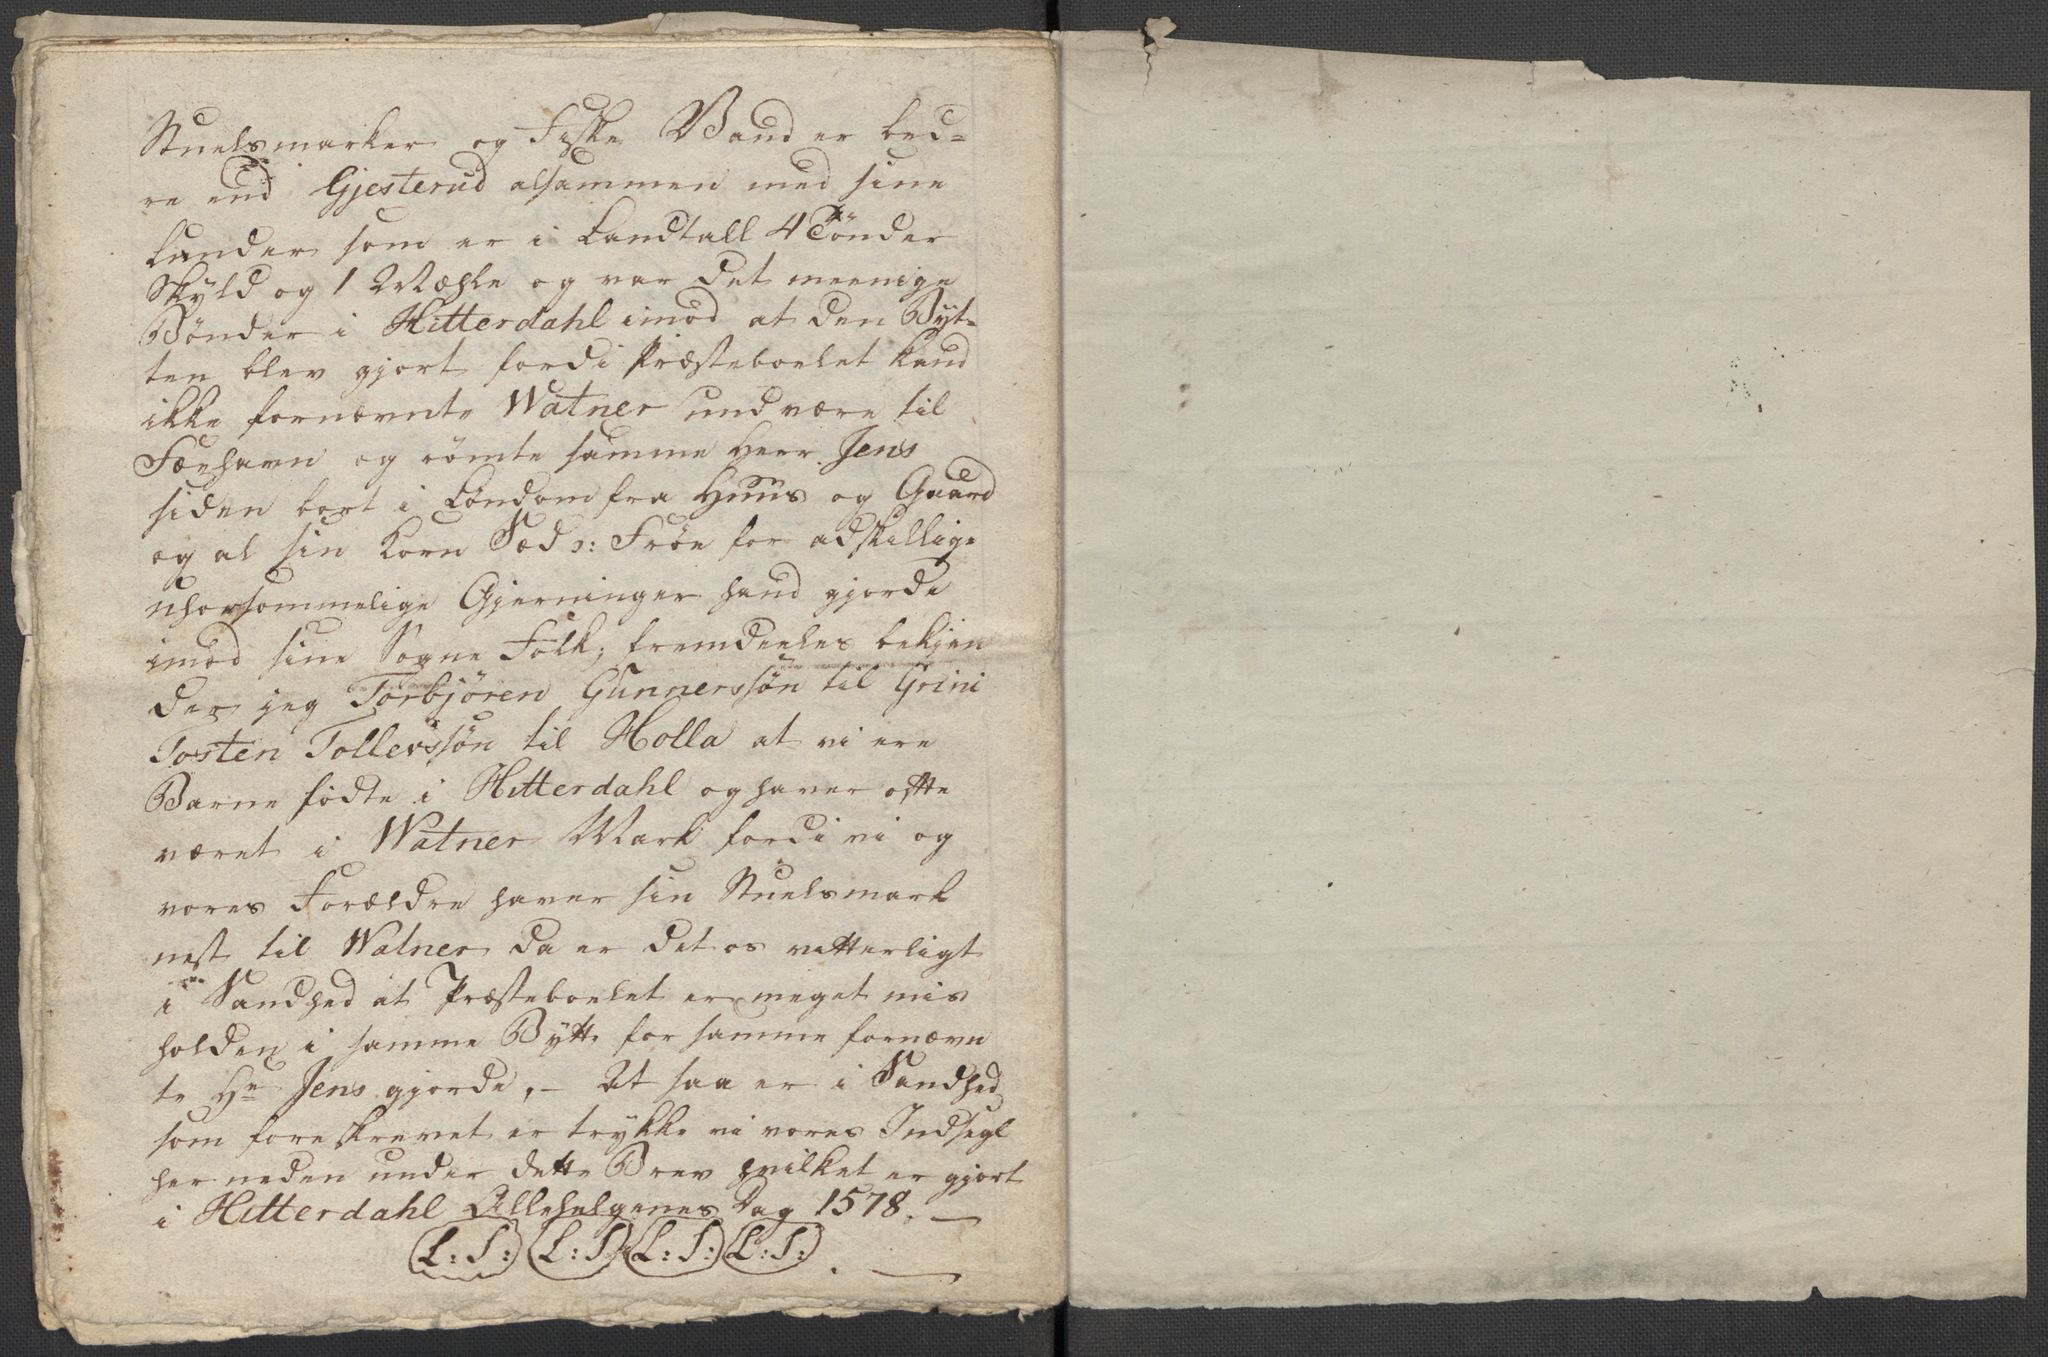 Stuelsmarker og Fiske Vand er bed-
re end Gjesterud alsammen med sine
Lunder som er i Landtall 4 Tönder
Skyld og 1 Mæhle og var det meenige
Bönder i Hitterdahl imod at den Byt-
ten blev gjort fordi Præsteboelet kand
ikke fornævnte Watner undvære til
Fæehavn og römte samme Herr Jens
siden bort i Löndom fra Huus og Gaard
og al sin Korn Sæd ɔ: Fröe for adskillige
uhorsommelige Gjerninger hand gjorde
imod sine Sogne Folk; fremdeeles bekjen
der jeg Torbjören Gunnerssön til Grini
Tosten Tollevssön til Holla at vi ere
Barne födte i Hitterdahl og haver ofte
været i Watner Mark fordi vi og
vores Forældre haver sin Stuelsmark
nest til Watner da er det os vitterligt
i Sandhed at Præsteboelet er meget mis
holden i samme Bytte for samme fornævn
te Hr Jens gjorde, - At saa er i Sandhed
som foreskrevet er trykke vi vores Indsegl
her neden under dette Brev hvilket er gjort
i Hitterdahl Allehelgenes Dag 1578. -
L: S: L: S: L: S: L: S: . -